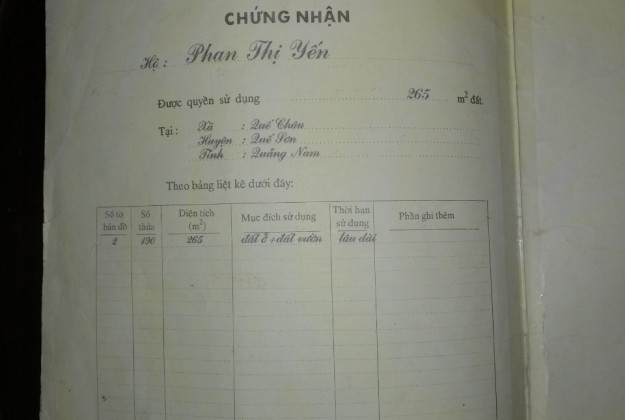 CHỨNG NHẬN
Hộ : Phan Thị Yến
Được quyền sử dụng 265 m² đất.
Tại : Xã : Quế Châu
Huyện : Quế Sơn
Tỉnh : Quảng Nam
Theo bảng liệt kê dưới đây:
Số tờ bản đồ Số thửa Diện tích (m²) Mục đích sử dụng Thời hạn sử dụng Phần ghi thêm
2 190 265 đất ở + đất vườn lâu dài